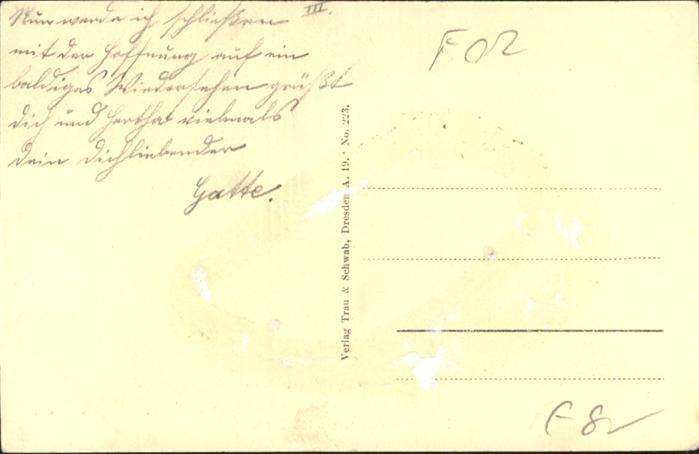 III.
Nun werde ich schließen
mit der Hoffnung auf ein
baldiges Wiedersehen grüßt
dich und Hertha vielmals
dein dichliebender
Gatte.
Verlag Trau & Schwab, Dresden A. 19. · No. 223.
F 02
F 8